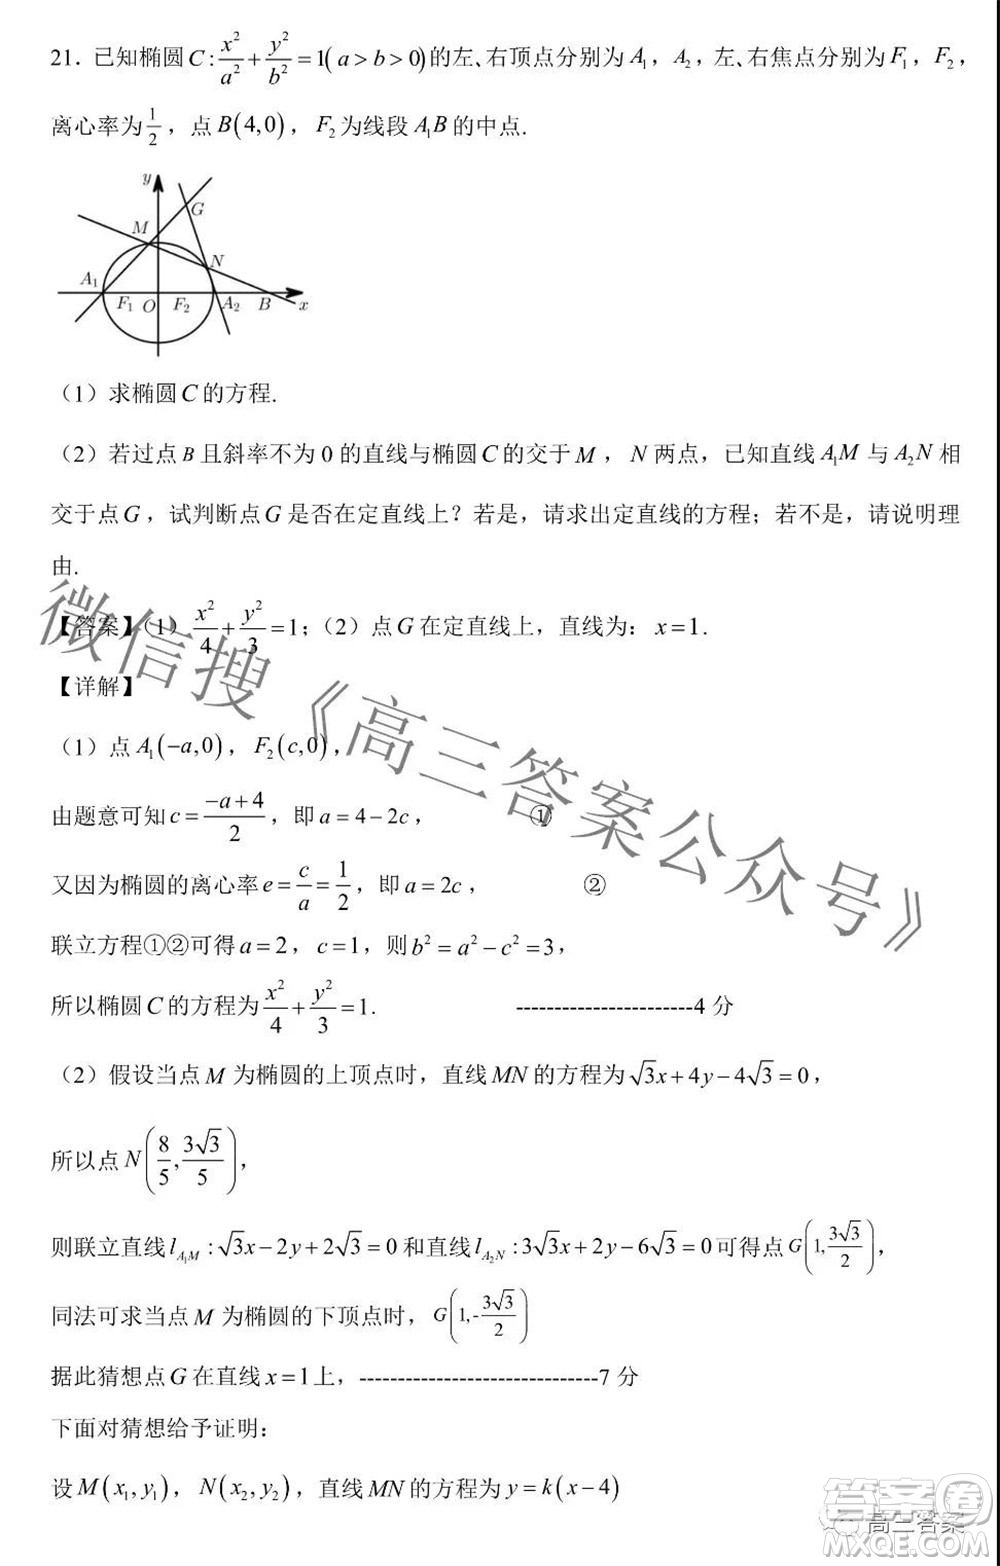 21．已知椭圆 C : x²/a² + y²/b² = 1( a > b > 0) 的左、右顶点分别为 A₁，A₂，左、右焦点分别为 F₁，F₂，
离心率为 1/2，点 B(4,0)，F₂ 为线段 A₁B 的中点.
y
G
M
N
A₁ F₁ O F₂ A₂ B x
（1）求椭圆 C 的方程.
（2）若过点 B 且斜率不为 0 的直线与椭圆 C 的交于 M，N 两点，已知直线 A₁M 与 A₂N 相
交于点 G，试判断点 G 是否在定直线上？若是，请求出定直线的方程；若不是，请说明理
由.
【答案】（1） x²/4 + y²/3 = 1；（2）点 G 在定直线上，直线为：x = 1.
【详解】
（1）点 A₁(−a,0)，F₂(c,0)，
由题意可知 c = (−a+4)/2，即 a = 4 − 2c， ①
又因为椭圆的离心率 e = c/a = 1/2，即 a = 2c， ②
联立方程①②可得 a = 2，c = 1，则 b² = a² − c² = 3，
所以椭圆 C 的方程为 x²/4 + y²/3 = 1. -----------------------4 分
（2）假设当点 M 为椭圆的上顶点时，直线 MN 的方程为 √3x + 4y − 4√3 = 0，
所以点 N(8/5, 3√3/5)，
则联立直线 l_A₁M : √3x − 2y + 2√3 = 0 和直线 l_A₂N : 3√3x + 2y − 6√3 = 0 可得点 G(1, 3√3/2)，
同法可求当点 M 为椭圆的下顶点时，G(1, -3√3/2)
据此猜想点 G 在直线 x = 1 上，-------------------------------7 分
下面对猜想给予证明：
设 M(x₁, y₁)，N(x₂, y₂)，直线 MN 的方程为 y = k(x − 4)
微信搜《高三答案公众号》
高三答案
答案圈
MXQE.COM